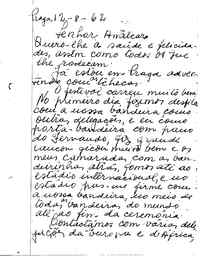 Praga, 12-8-62
Senhor Amílcar
Quero-lhe a saúde e felicida-
des, assim como todos os que
lhe rodeiam.
Já estou em Praga
com checos.
O festival correu muito bem
No primeiro dia fizemos desfile
com a nossa bandeira como
outras delegações, e eu como
porta-bandeira com pano
do Fernando, fiz
muito bem e os
meus camaradas com as ban-
deirinhas atrás, fomos até ao
estádio internacional e no
estádio firme com
a nossa bandeira, no meio de
todas bandeiras do mundo
até ao fim da cerimónia.
Contactámos com várias dele-
gações da Europa e de África,